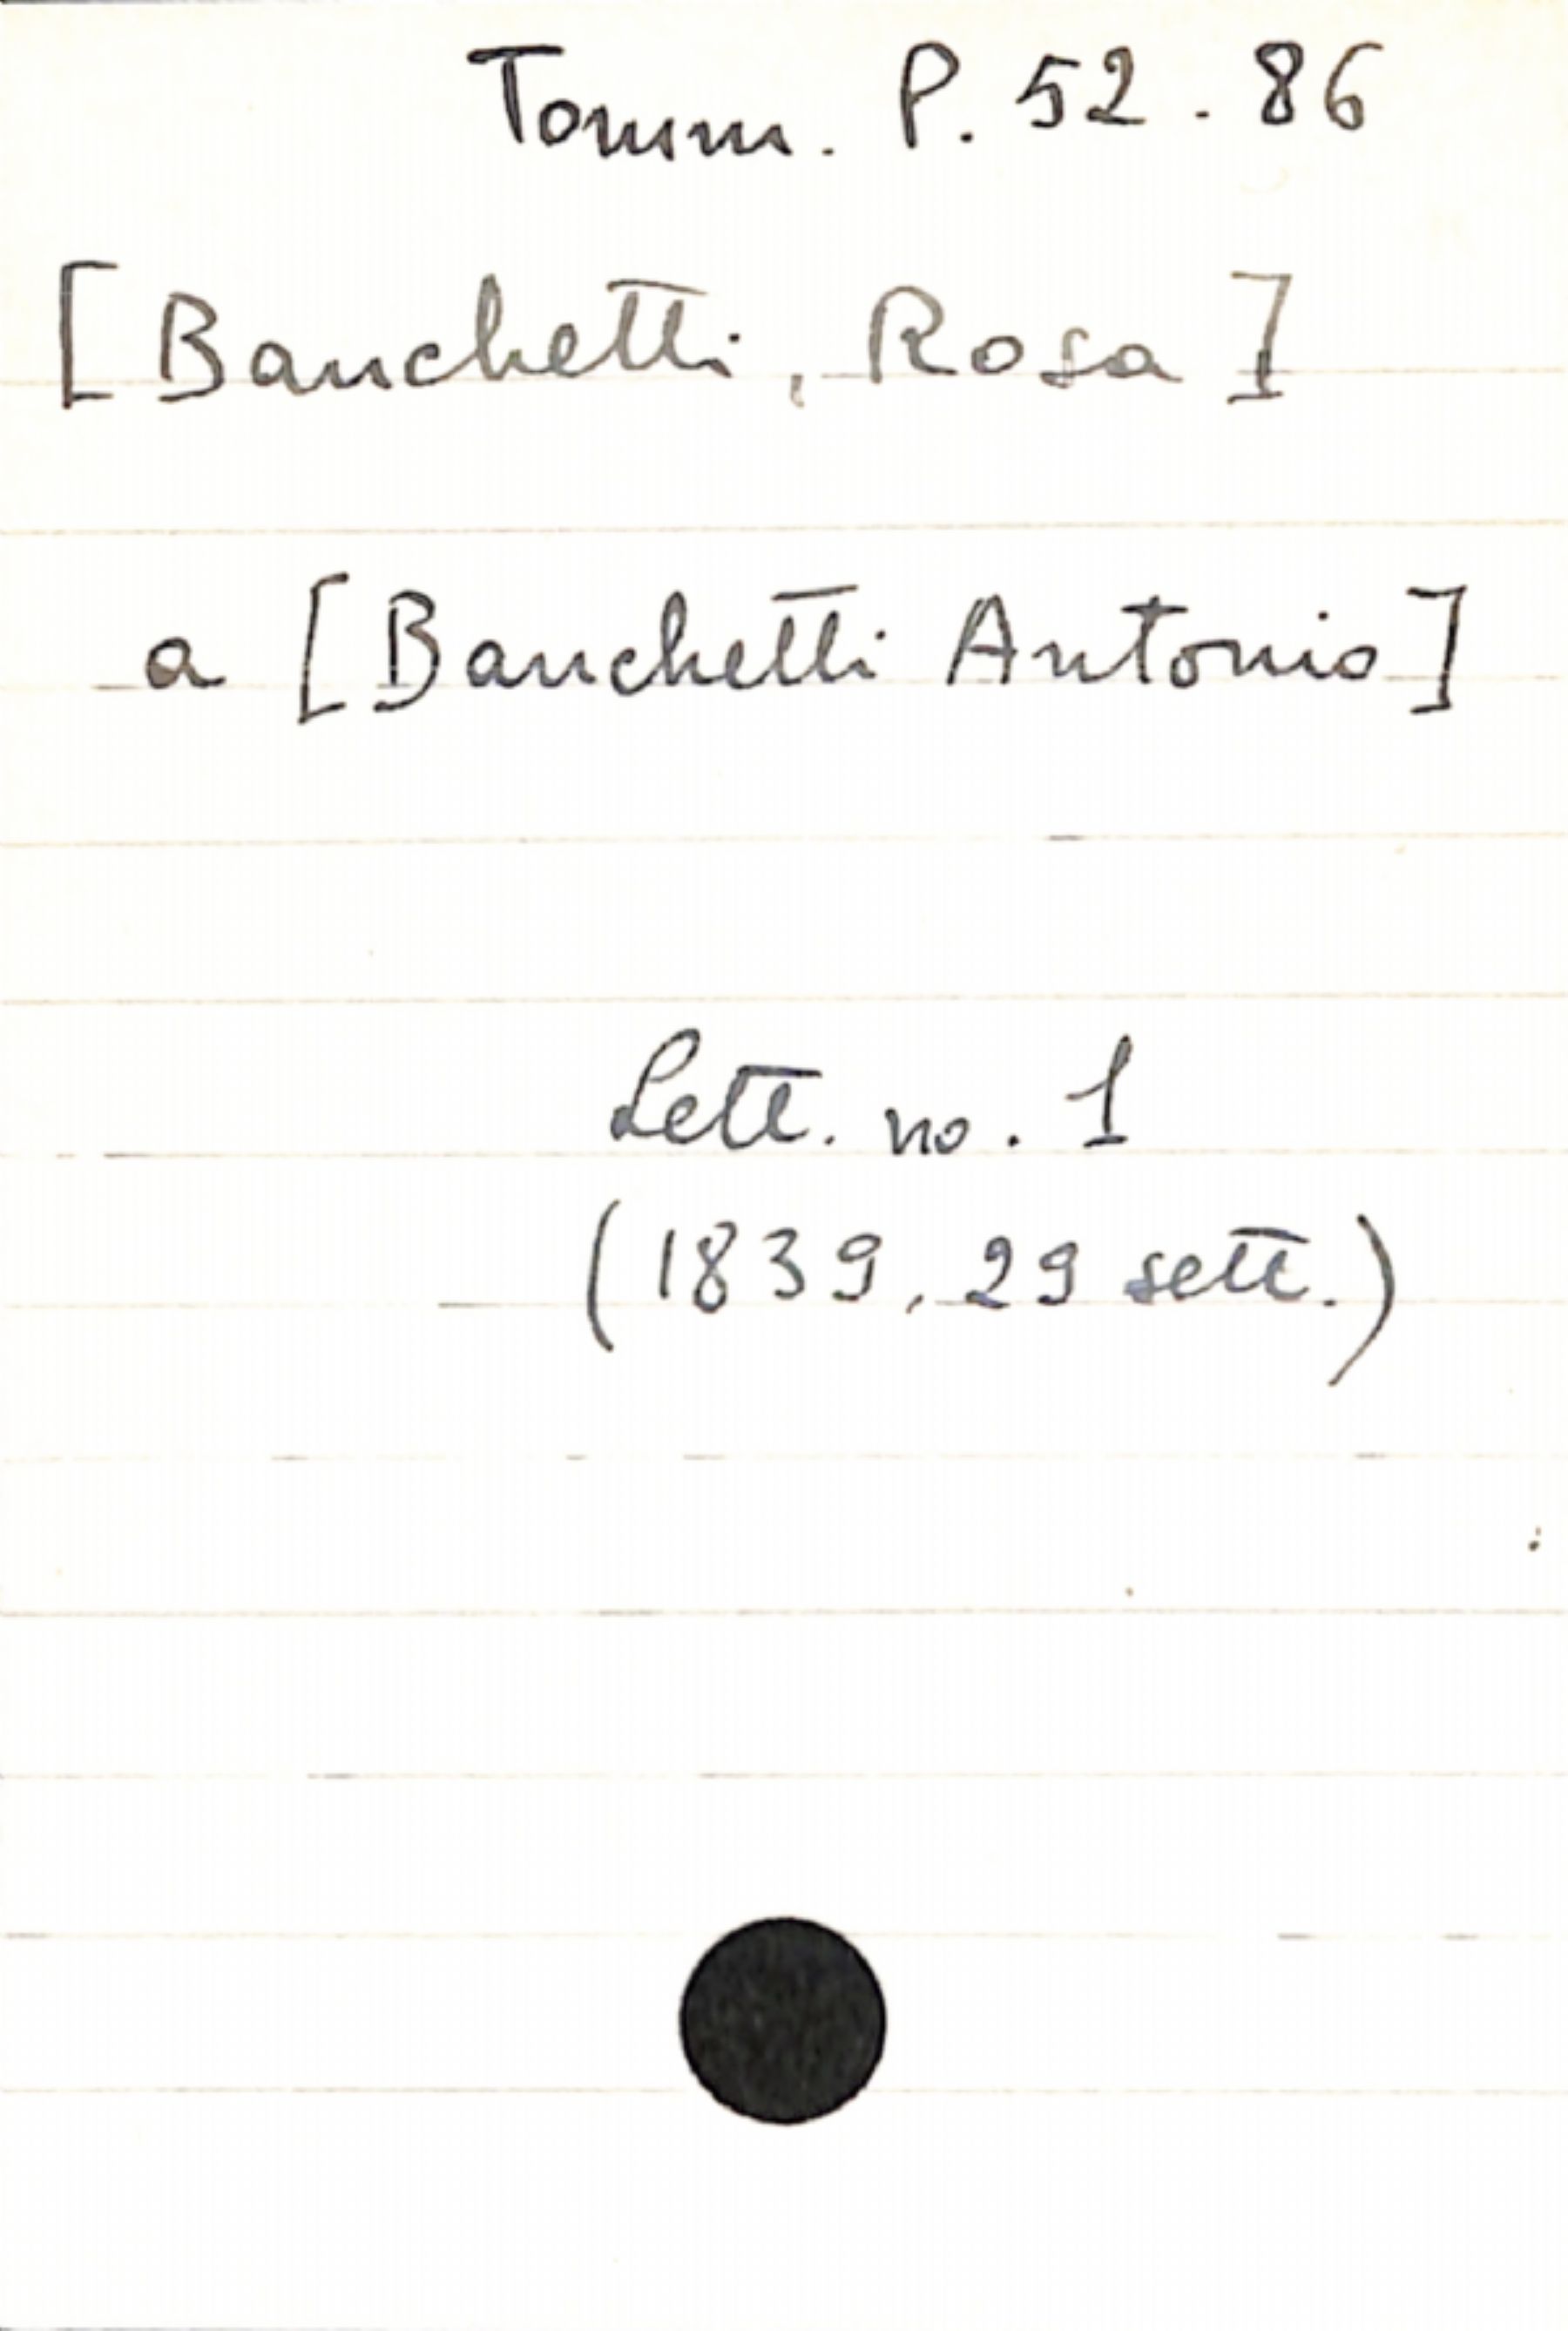 Tomm. P. 52. 86
[Banchetti, Rosa]
a [Banchetti Antonio]
Lett. no. 1
(1839, 29 sett.)